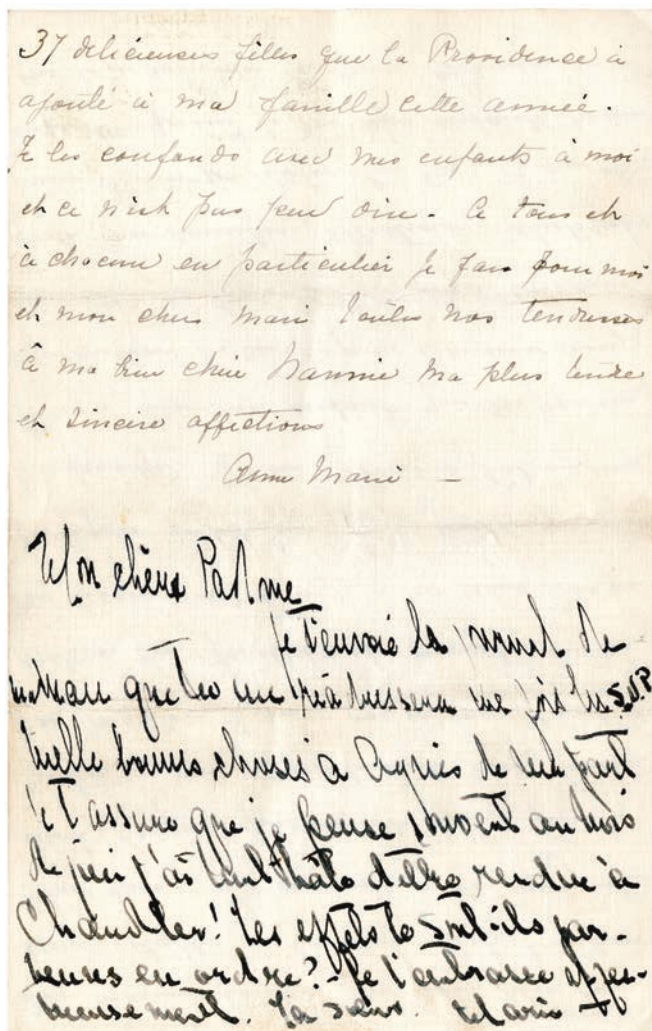 37 délicieuses filles que la Providence à
ajouté à ma famille cette année.
Je les confonds avec mes enfants à moi
et ce n'est pas peu dire. A tous et
à chacun en particulier je fais pour moi
et mon cher mari toutes nos tendresses
à ma bien chère Nannie ma plus tendre
et sincère affections
Anne Marie —
Mon cheux Pad me
Je t'envoie la
maman que tu me réadressera une fois lu. S.V.P
Mille bonnes choses à Agnès de ma part
et assure que je pense souvent au mois
de juin j'ai hâte d'être rendue à
Chandler! Tes effets te sont-ils par-
venus en ordre? - Je t'embrasse affec-
tueusement. Ta soeur. Marie